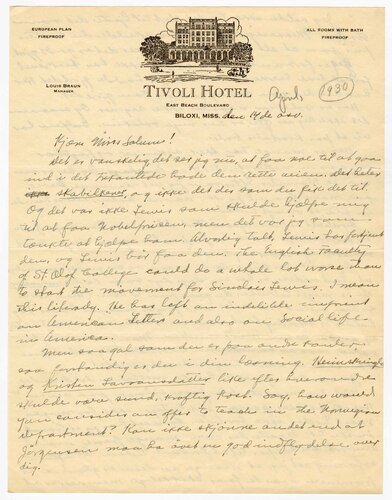 EUROPEAN PLAN
FIREPROOF
ALL ROOMS WITH BATH
FIREPROOF
LOUIS BRAUN
MANAGER
TIVOLI HOTEL
EAST BEACH BOULEVARD
BILOXI, MISS. den 14 de
April,
(1930)
Kjære Miss
Det er vanskelig det ser jeg nu, at faa noe til at gaa
ind i det hode den rette veien. Det heter
skabilkener, og ikke det som du fik det til.
Og det var ikke Lewis som skulde hjælpe mig
til at faa Nobelprisen, men det var jeg som
tænkte at hjælpe ham. Alvorlig talt, Lewis har fortjent
den, og Lewis bør faa den. The English Faculty
of St Olaf College could do a whole lot worse than
to start the movement for Sinclair Lewis. I mean
this literally. He has left an indelible imprint
on American Letters and also on Social life
in America.
Men saa gal som den er paa andre kanter,
saa forstandig er den i din læsning. Heimskringla
og Kristin Lavransdatter like efter hverandre
skulde være sund, kraftig kost. Say, how would
you consider an offer to teach in the Norwegian
Department? Kan ikke skjønne andet end at
Jörgensen maa ha øvet en god indflydelse over
dig.